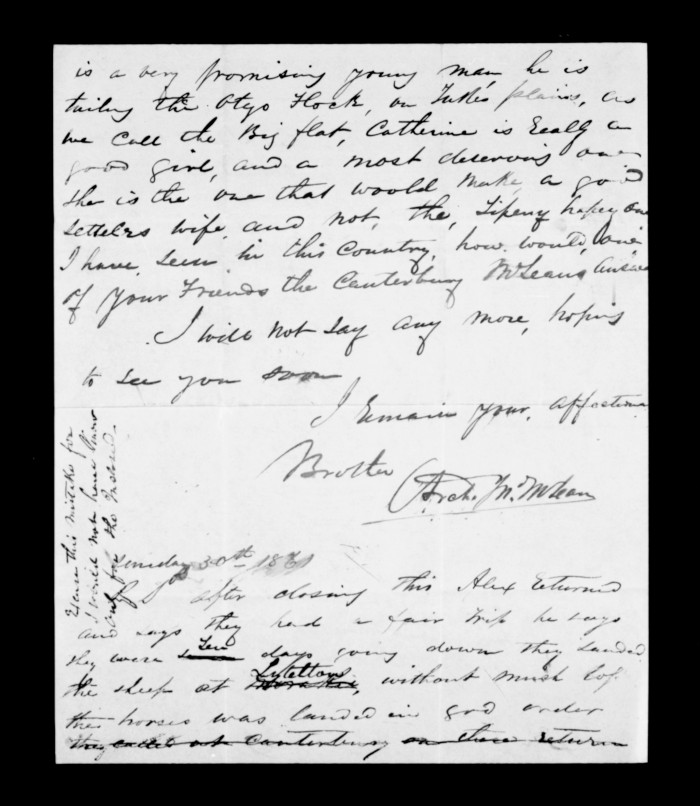 is a very promising young man, he is
tailing the Otego Flock, on Tukes plains, as
we call the Big flat, Catherine is Really a
good girl, and a most deserving one
she is the one that would make, a good
settelers wife, and not, the, hapey one
I have, seen in this Country, how, would, one
of your Friends the Canterbury McLeans answer
I will not say any more, hoping
to see you soon
I Remain your, affectiona
Brother
Arch. Jn. McLean
30th 1861
after closing this Alex Returned
and says they had a fair trip he says
they were Ten days going down they landed
the sheep at Lyteltons, without much los.
the horses was landed in good order
they called at Canterbury on there return
this mistake for
I would not have
only for the